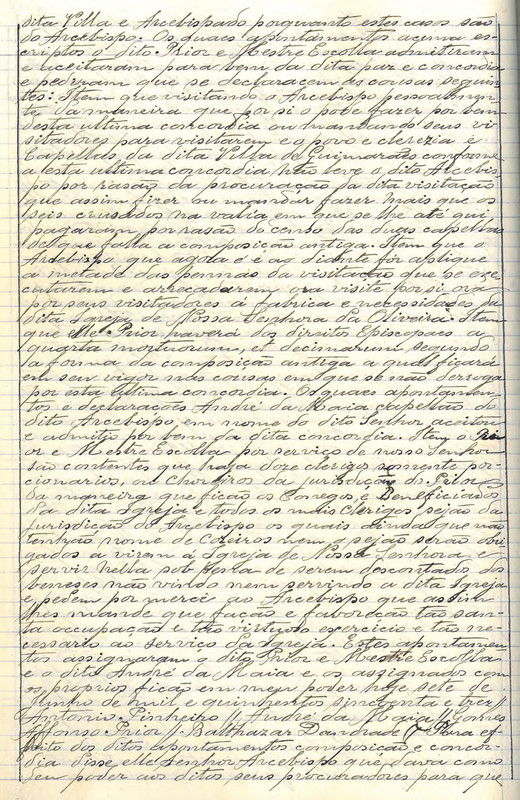 dita Villa e Arcebispado porquanto estes casos são
do Arcebispo. Os quaes apontamentos acima es-
criptos o dito Prior e Mestre Escolla admitiram
e aceitaram para bem da dita paz e concordia
e pediram que se declaracem as cousas seguin-
tes: Item que visitando o Arcebispo pessoalmen-
te da maneira que por si o pode fazer por bem
desta ultima concordia ou mandando seus vi-
sitadores para visitarem o povo e clerezia e
Capellas da dita Villa de Guimarães conforme
a esta ultima concordia não leve o dito Arcebis-
po por rasão da procuração da dita visitação
que assim fizer ou mandar fazer mais que os
seis crusados na valia em que se lhe até qui
pagaram por rasão do censo das duas capellas
de que falla a composição antiga. Item que o
Arcebispo que agora é e ao diante fôr aplique
a metade das pennas da visitação que se exe-
cutarem e arrecadarem ora visite por si ora
por seus visitadores á fabrica e necessidades da
dita Igreja de Nossa Senhora da Oliveira. Item
que elle Prior haverá dos direitos Episcopaes a
quarta mortuorum, et decimarum segundo
a forma da composição antiga a qual ficará
em seu vigor nas cousas em que se não derroga
por esta ultima concordia. Os quaes apontamen-
tos e declarações André da Maia capellão do
dito Arcebispo em nome do dito Senhor aceitou
e admitiu por bem da dita concordia. Item o Pri-
or e Mestre Escolla por serviço de nosso Senhor
são contentes que haja doze clerigos somente por-
cionarios, ou Choreiros da jurisdição do Prior
da maneira que ficão os Conegos e Beneficiados
da dita Igreja e todos os mais clerigos sejão da
jurisdição do Arcebispo os quaes ainda que não
tenhão nome de Coreiros nem o sejão serão obri-
gados a virem á Igreja de Nossa Senhora e
servir nella sob penna de serem descontados dos
beneses não vindo nem servindo a dita Igreja
e pedem por mercê ao Arcebispo que assim
lhes mande que fação e favoreção tão san-
ta occupação e tão virtuoso exercicio e tão ne-
cessario ao serviço da Igreja. Estes apontamen
tos assignaram o dito Prior e Mestre Escolla
e o dito André da Maia e os assignados com
os proprios ficão em meu poder hoje sete de
Junho de mil e quinhentos sincoenta e trez //
Antonio Pinheiro // André da Maia // Gomes
Affonso Prior // Balthazar Dandrade // Para ef-
feito dos ditos apontamentos composição e concor-
dia disse elle Senhor Arcebispo que dava como
deu poder aos ditos seus procuradores para que